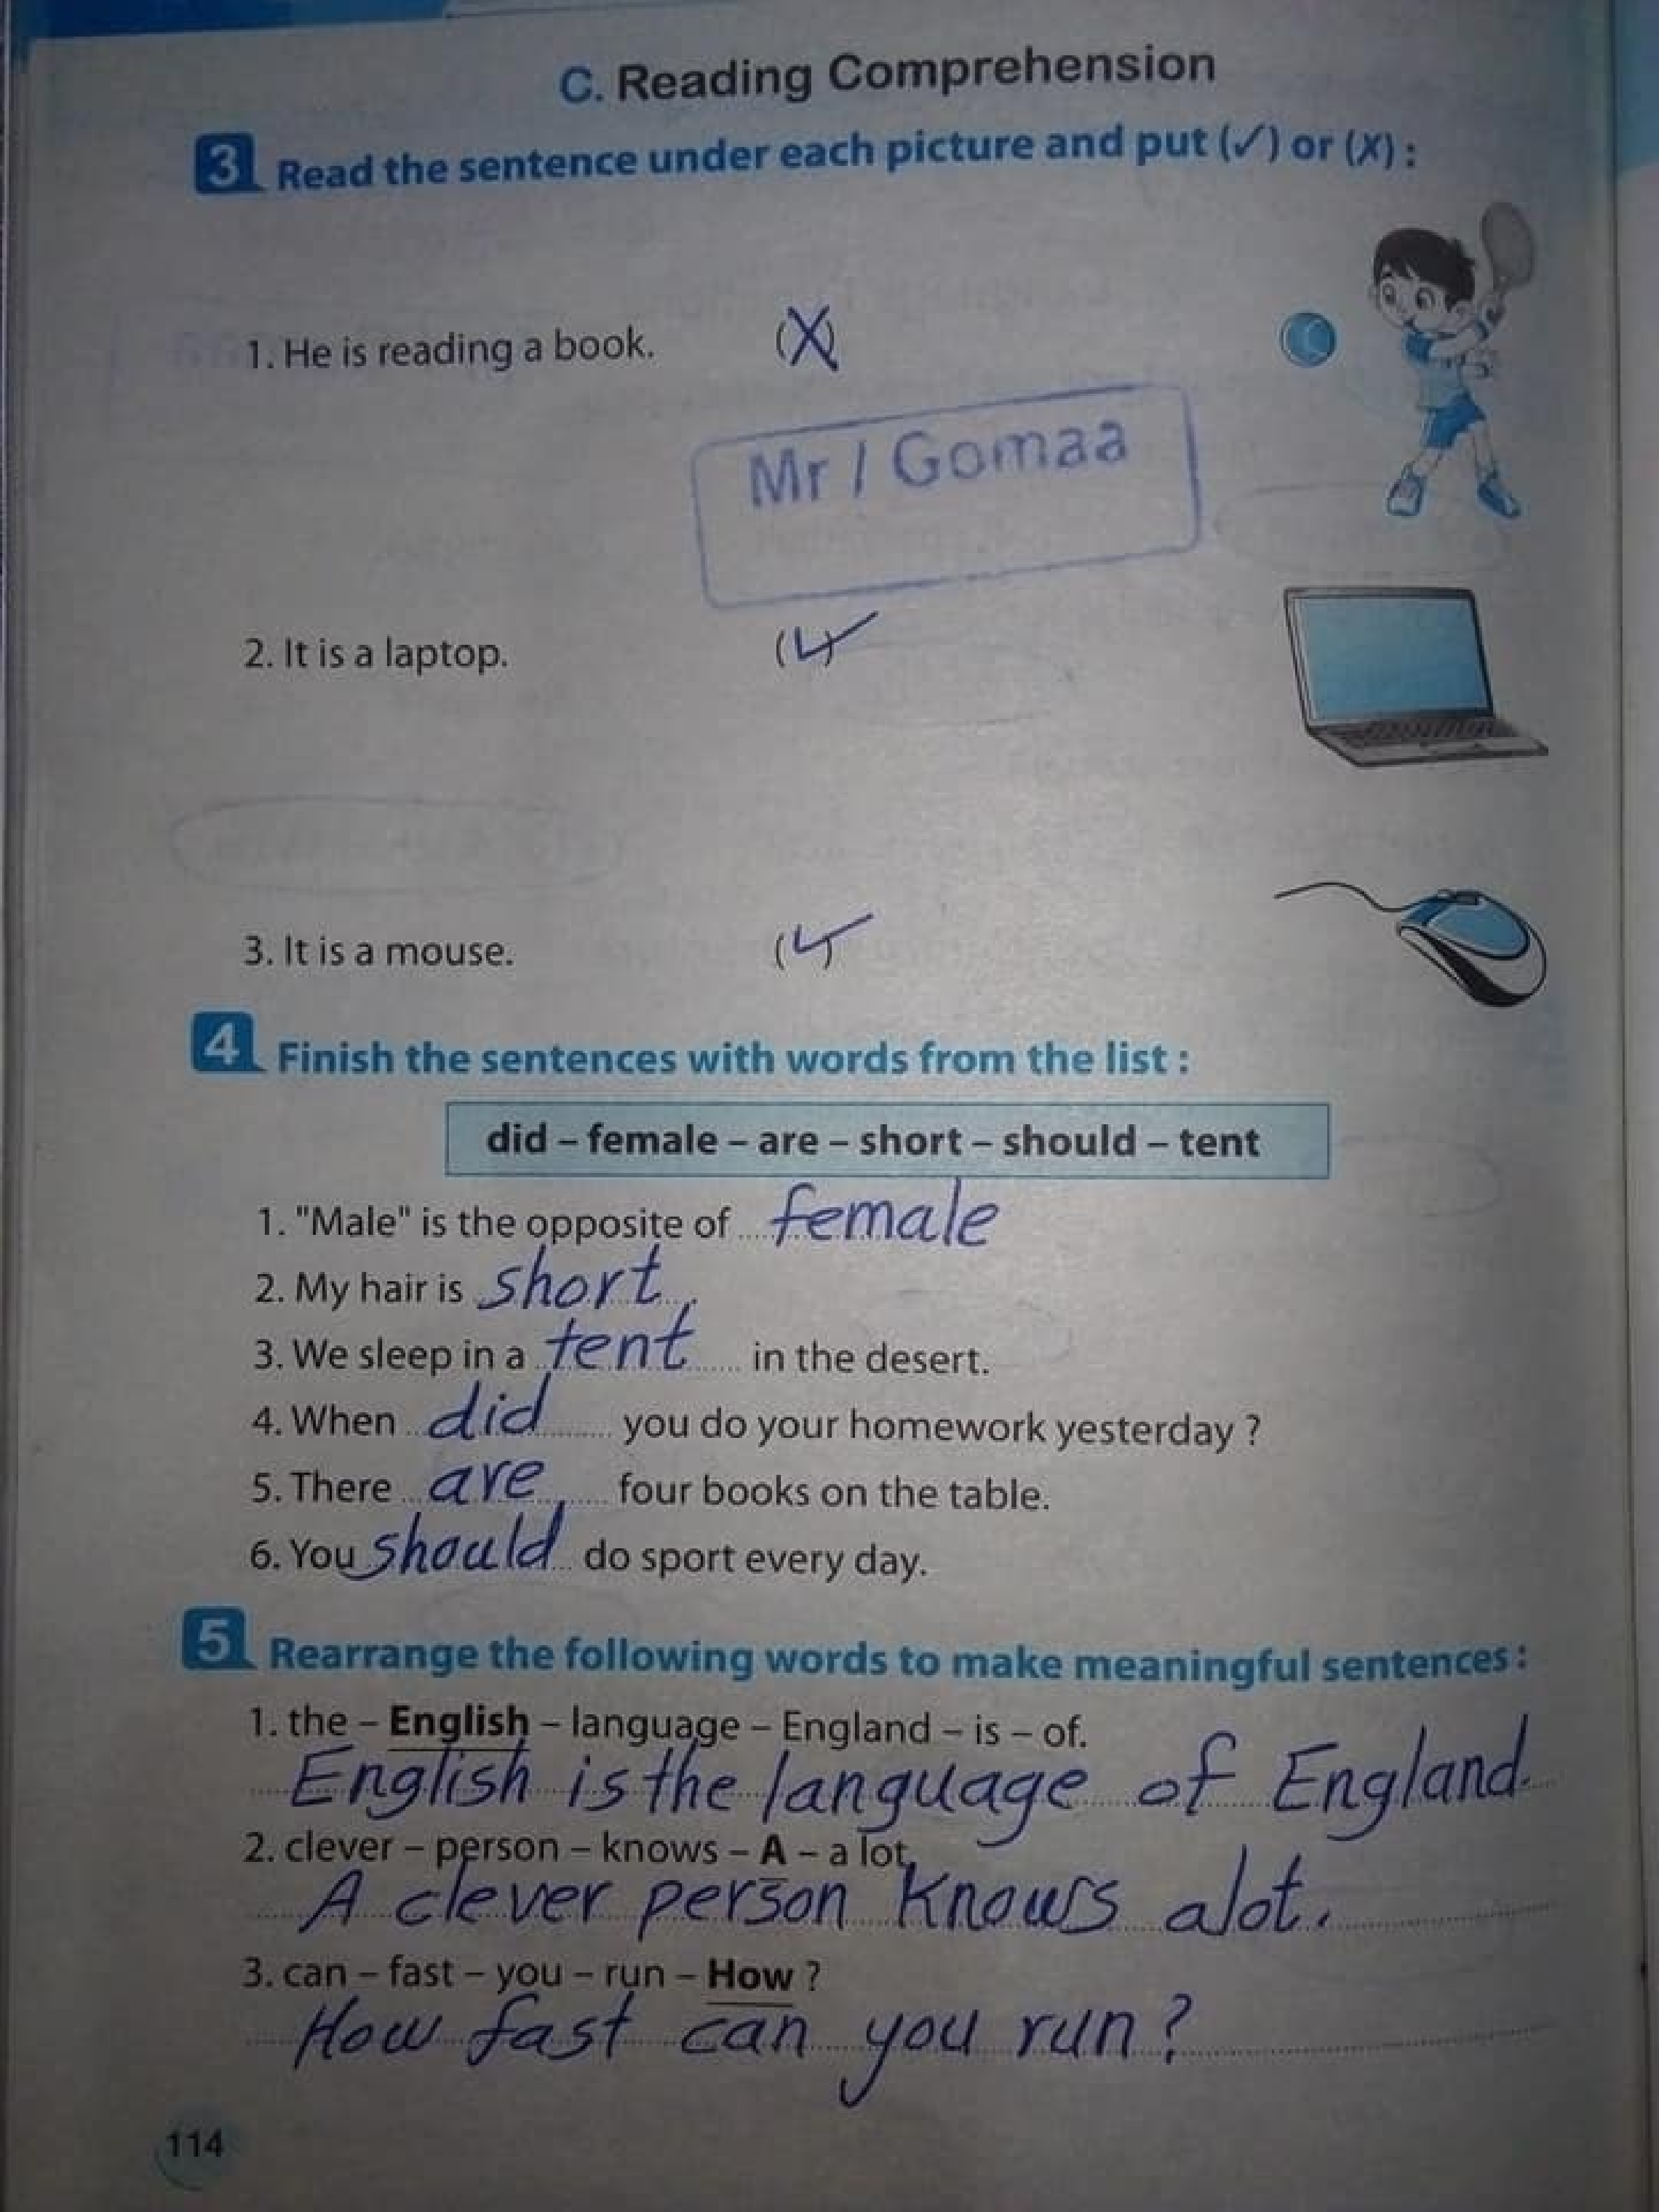 C. Reading Comprehension
3 Read the sentence under each picture and put (✓) or (X) :
1. He is reading a book. (X)
Mr / Gomaa
2. It is a laptop. (✓)
3. It is a mouse. (✓)
4 Finish the sentences with words from the list :
did – female – are – short – should – tent
1. "Male" is the opposite of female
2. My hair is short.
3. We sleep in a tent in the desert.
4. When did you do your homework yesterday ?
5. There are four books on the table.
6. You should do sport every day.
5 Rearrange the following words to make meaningful sentences :
1. the – English – language – England – is – of.
English is the language of England.
2. clever – person – knows – A – a lot.
A clever person knows alot.
3. can – fast – you – run – How ?
How fast can you run?
114